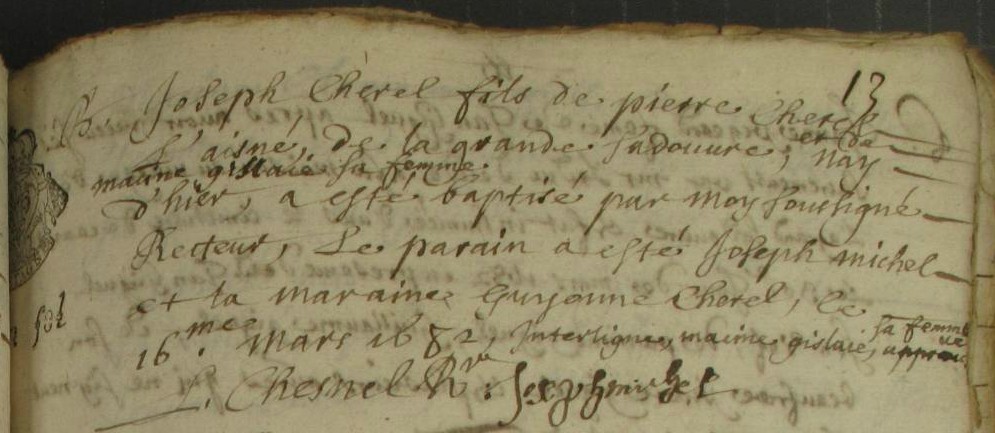 13
Joseph Cherel fils de pierre Cherel
L'aisné, De la grande Jadouvre, et de
maurie gislaie sa femme Nay
d'hier, a esté baptisé par moy soubsigné
Recteur, Le parain a esté Joseph michel
et la maraine Guyonne Cherel, le
16.me Mars 1682, Interligne, maurie gislaie, sa femme approuve
J. Chesnel Rr. Joseph michel